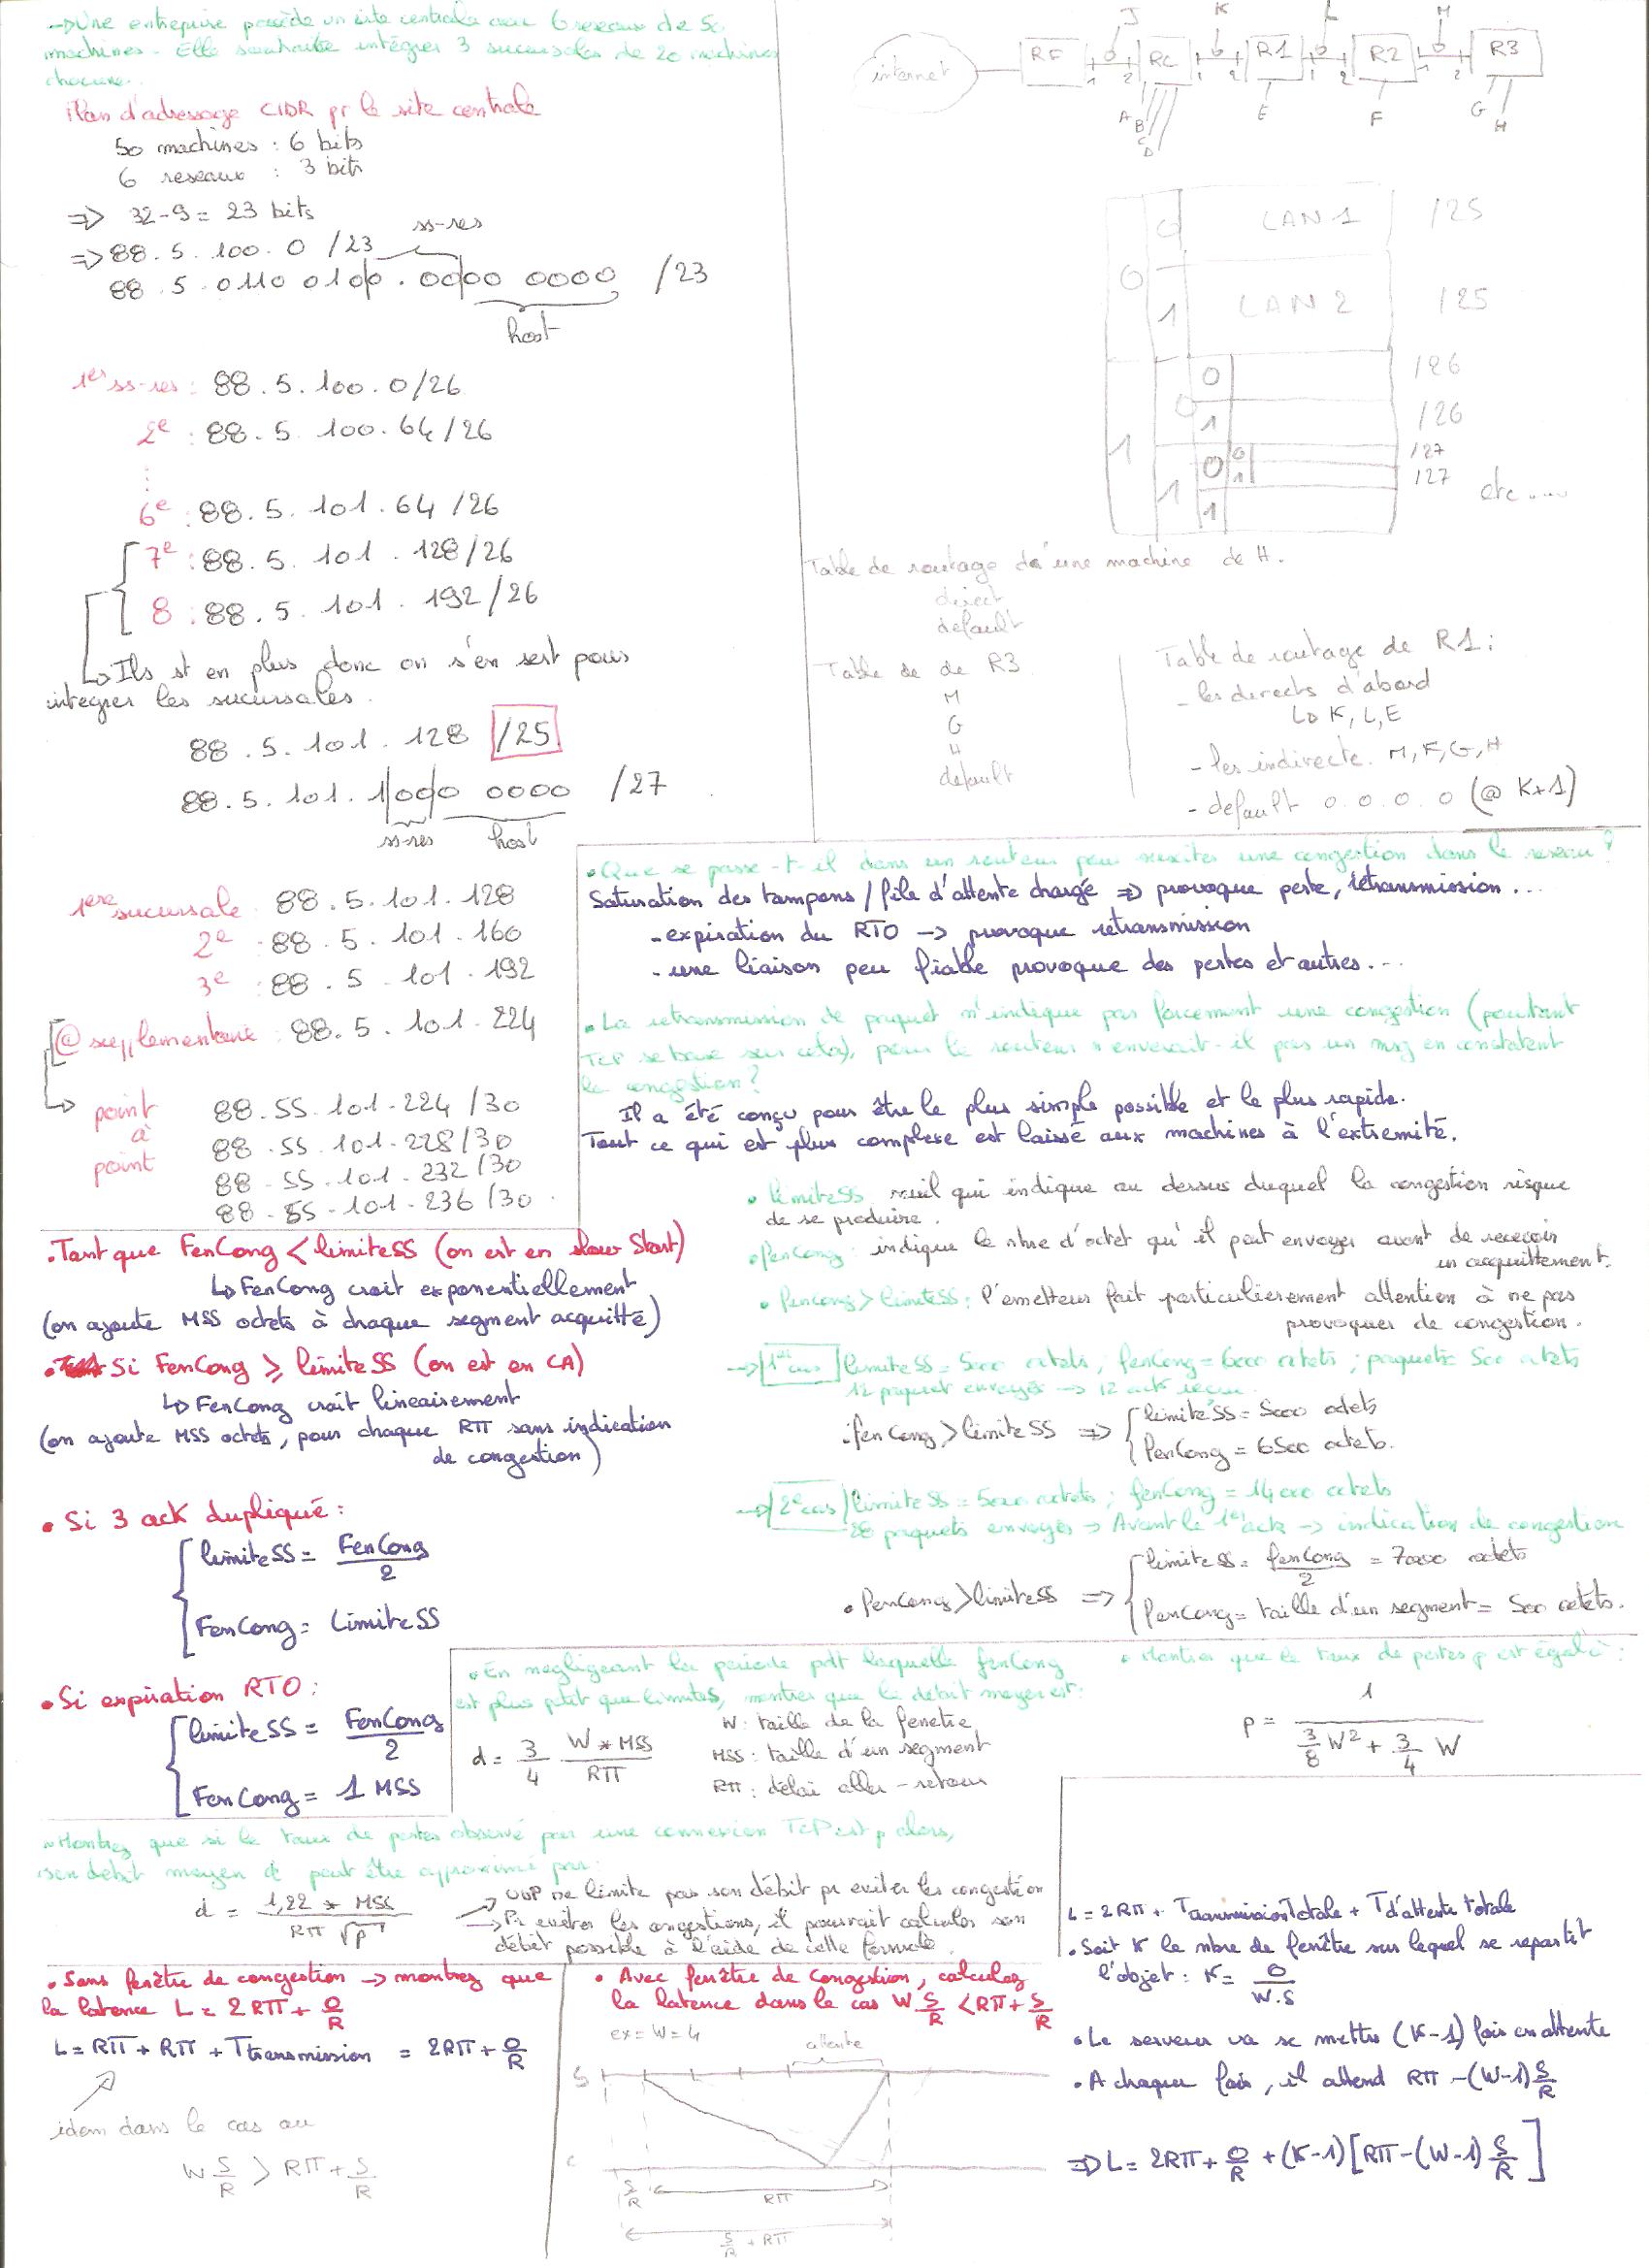 → Une entreprise possède un site centrale avec 6 reseaux de 50
machines. Elle souhaite intégrer 3 sucursales de 20 machines
chacune.
Plan d'adressage CIDR pr le site centrale
50 machines : 6 bits
6 reseaux : 3 bits
⇒ 32-9 = 23 bits
ss-res
⇒ 88.5.100.0 /23
88.5.0110 0100.0000 0000 /23
host
1er ss-res : 88.5.100.0/26
2e : 88.5.100.64/26
6e : 88.5.101.64/26
7e : 88.5.101.128/26
8 : 88.5.101.192/26
↳ Ils st en plus donc on s'en sert pour
integrer les sucursales.
88.5.101.128 /25
88.5.101.1000 0000 /27
ss-res host
1ere sucursale : 88.5.101.128
2e : 88.5.101.160
3e : 88.5.101.192
@ supplementaire : 88.5.101.224
point à point
88.55.101.224 /30
88.55.101.228 /30
88.55.101.232 /30
88.55.101.236 /30
J K L M
internet RF 1 2 RC 1 2 R1 1 2 R2 1 2 R3
A B C D E F G H
0 0 LAN 1 /25
1 LAN 2 /25
1 0 0 /26
1 /26
1 0 0 /27
1 /27
1 etc ....
Table de routage de une machine de H.
direct
default
Table de de R3
M
G
H
default
Table de routage de R1 :
- les directs d'abord
↳ K, L, E
- les indirecte. M, F, G, H
- default 0.0.0.0 (@ K+1)
• Que se passe-t-il dans un routeur pour susciter une congestion dans le reseau ?
Saturation des tampons / file d'attente chargé ⇒ provoque perte, retransmission ...
- expiration du RTO → provoque retransmission
- une liaison peu fiable provoque des pertes et autres...
• La retransmission de paquet n'indique pas forcement une congestion (pourtant
TCP se base sur cela), pour le routeur n'enverait-il pas un msg en constatent
la congestion ?
Il a été conçu pour être le plus simple possible et le plus rapide.
Tout ce qui est plus complexe est laissé aux machines à l'extremité.
• limiteSS seuil qui indique au dessus duquel la congestion risque
de se produire.
• fenCong : indique le nbre d'octet qu'il peut envoyer avant de recevoir
un acquittement.
• fenCong > limiteSS : l'emetteur fait particulierement attention à ne pas
provoquer de congestion.
→ 1er cas limiteSS = 5000 octets, fenCong = 6000 octets ; paquets 500 octets
12 paquet envoyés → 12 ack recu.
• fenCong > limiteSS ⇒ { limiteSS = 5000 octets
fenCong = 6500 octets.
→ 2e cas limiteSS = 5000 octets ; fenCong = 14000 octets
28 paquets envoyés → Avant le 1er ack → indication de congestion
• fenCong > limiteSS ⇒ { limiteSS = fenCong/2 = 7000 octets
fenCong = taille d'un segment = 500 octets.
• Tant que FenCong < limiteSS (on est en slow Start)
↳ FenCong croit exponentiellement
(on ajoute MSS octets à chaque segment acquitté)
• Si FenCong ≥ limiteSS (on est en CA)
↳ FenCong croit lineairement
(on ajoute MSS octets, pour chaque RTT sans indication
de congestion)
• Si 3 ack dupliqué :
{ limiteSS = FenCong/2
FenCong = LimiteSS
• Si expiration RTO :
{ limiteSS = FenCong/2
FenCong = 1 MSS
• En negligeant la periode pdt laquelle fenCong
est plus petit que limiteSS, montrer que le débit moyen est :
d = 3/4 W * MSS / RTT
W : taille de la fenetre
MSS : taille d'un segment
RTT : délai aller - retour
• Montrer que le taux de pertes p est égal à :
p = 1 / (3/8 W² + 3/4 W)
• Montrez que si le taux de pertes observé par une connexion TCP est p alors,
son debit moyen d peut être approximé par :
d = 1,22 * MSS / RTT √p
→ UDP ne limite pas son débit pr eviter les congestion
→ Pr eviter les congestions, il pourrait calculer son
débit possible à l'aide de cette formule.
• Sans fenêtre de congestion → montrez que
la latence L = 2RTT + O/R
L = RTT + RTT + Ttransmission = 2RTT + O/R
idem dans le cas ou
W S/R > RTT + S/R
• Avec fenêtre de congestion, calculez
la latence dans le cas W S/R < RTT + S/R
ex = W = 4
attente
S
C
S/R RTT
S/R + RTT
L = 2RTT + Transmission Totale + T d'attente totale
• Soit K le nbre de fenêtre sur lequel se repartit
l'objet : K = O/W.S
• Le serveur va se mettre (K-1) fois en attente
• A chaque fois, il attend RTT - (W-1) S/R
⇒ L = 2RTT + O/R + (K-1) [RTT - (W-1) S/R]